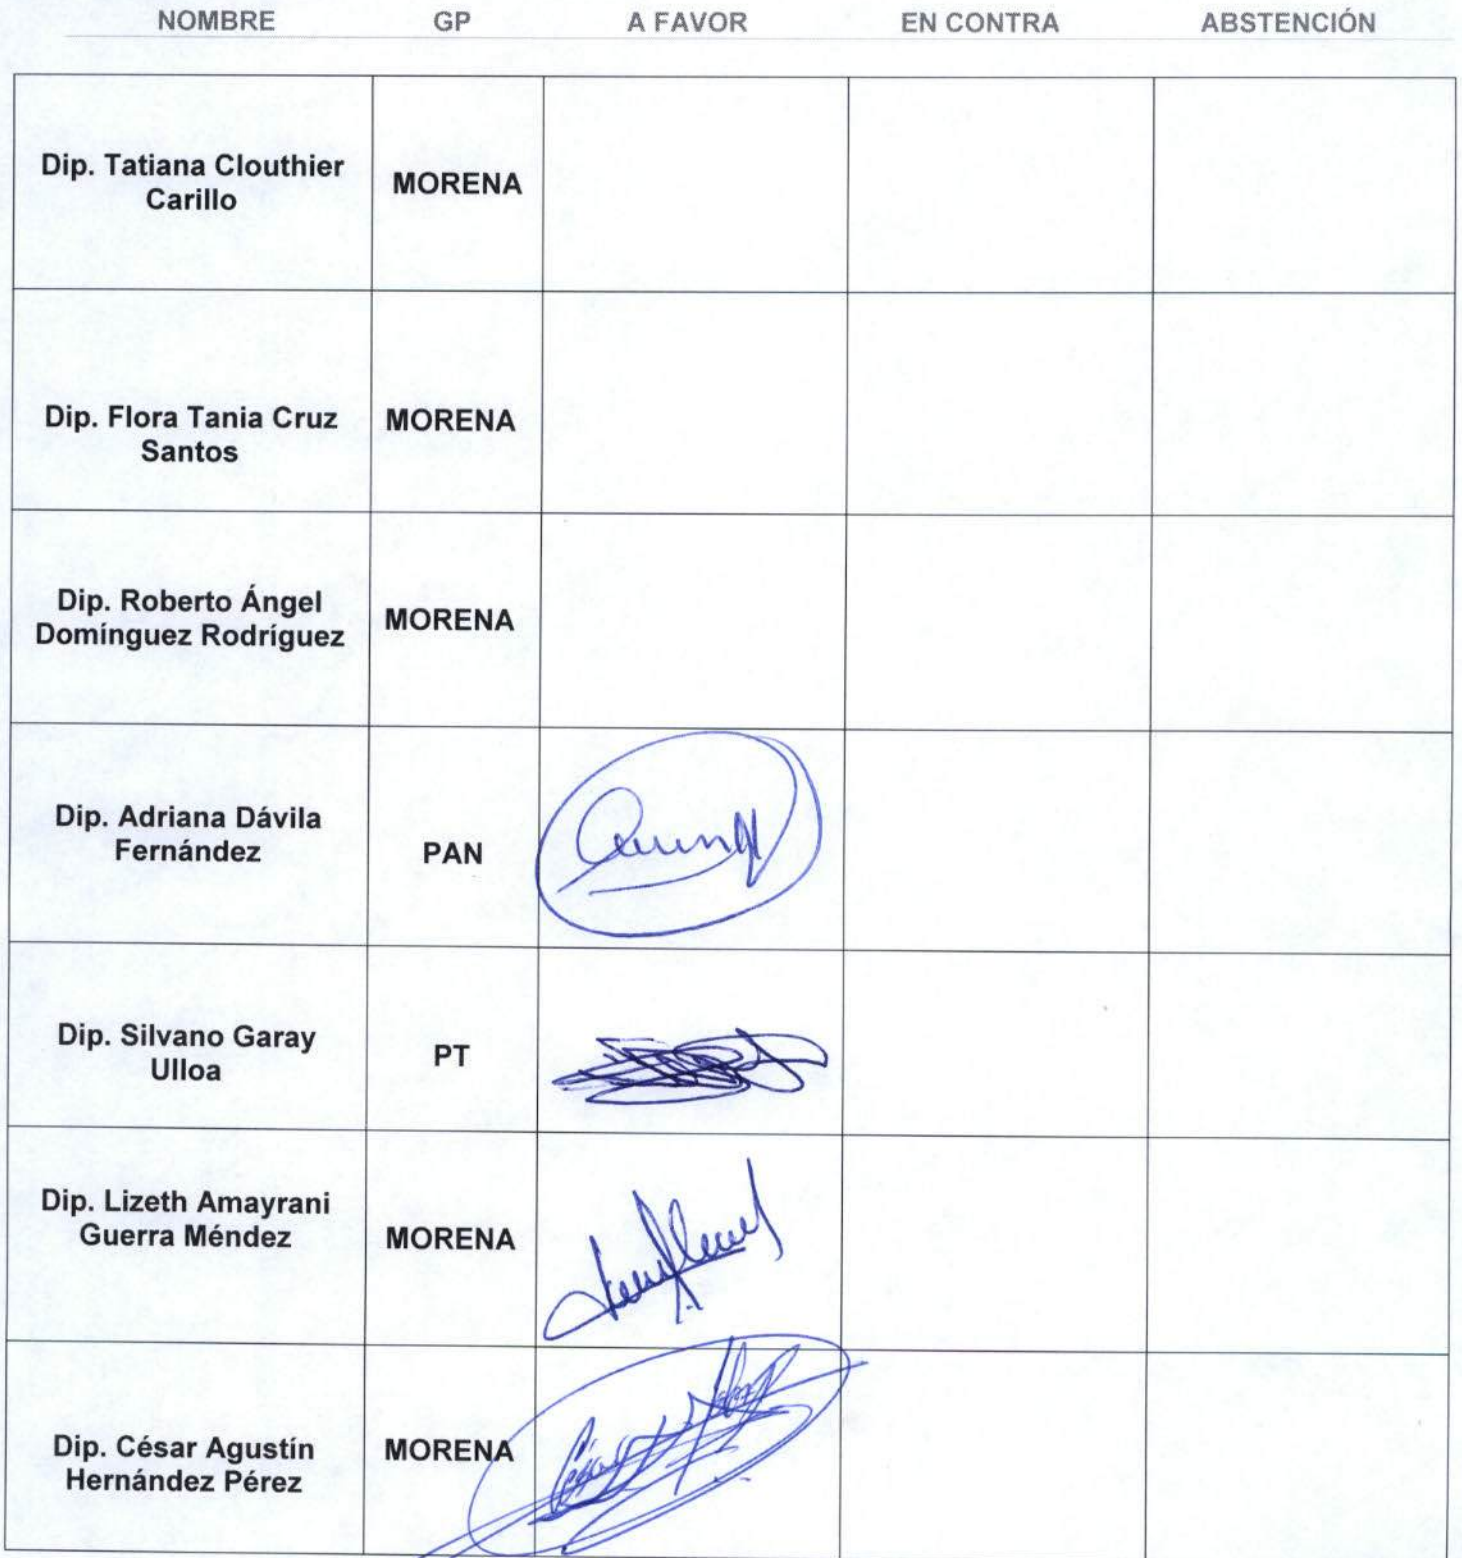 NOMBRE GP A FAVOR EN CONTRA ABSTENCIÓN
Dip. Tatiana Clouthier
Carillo
MORENA
Dip. Flora Tania Cruz
Santos
MORENA
Dip. Roberto Ángel
Domínguez Rodríguez
MORENA
Dip. Adriana Dávila
Fernández
PAN
Dip. Silvano Garay
Ulloa
PT
Dip. Lizeth Amayrani
Guerra Méndez
MORENA
Dip. César Agustín
Hernández Pérez
MORENA